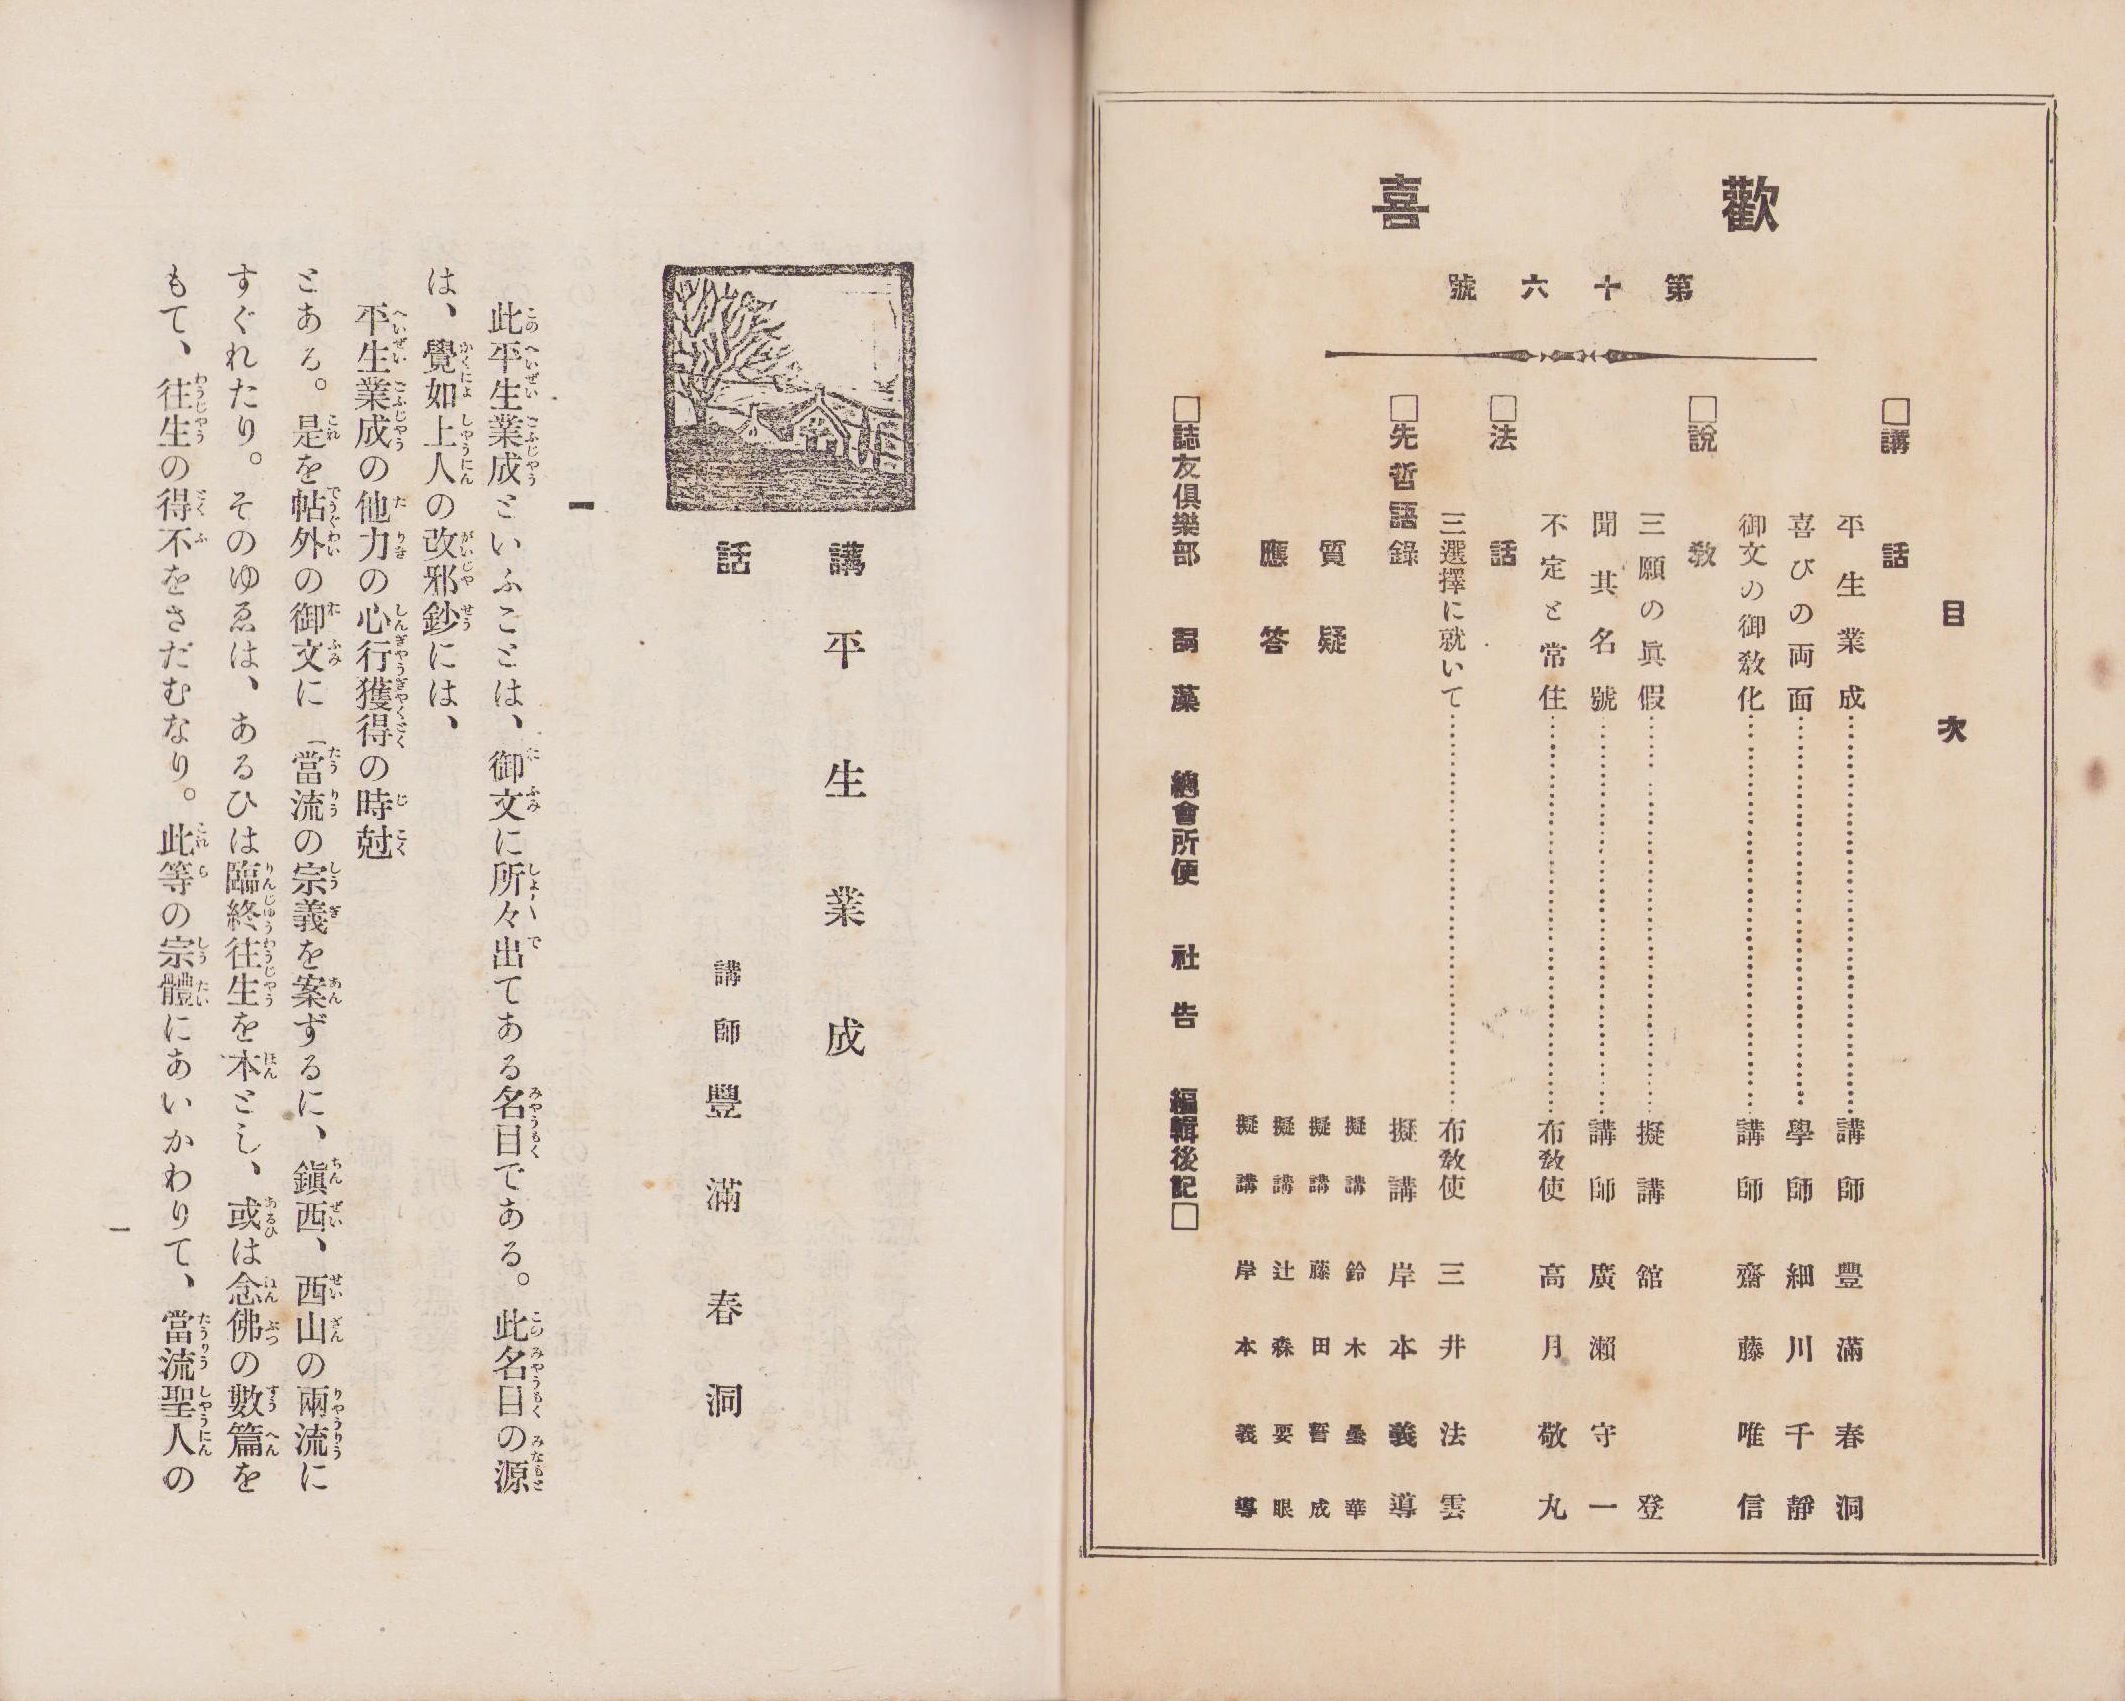 歡喜
第十六號
目次
□講話
平生業成……講師 豐滿春洞
喜びの両面……學師 細川千靜
御文の御敎化……講師 齋藤唯信
□說敎
三願の眞假……擬講 舘登
聞其名號……講師 廣瀨守一
不定と常住……布敎使 高月敬丸
□法話
三選擇に就いて……布敎使 三井法雲
□先哲語錄
擬講 岸本義導
質疑
應答
擬講 鈴木 華
擬講 藤田誓成
擬講 辻森要眼
擬講 岸本義導
□誌友俱樂部 詞藻 總會所便 社告 編輯後記□
講話
平生業成
講師 豐滿春洞
一
此平生業成といふことは、御文に所々出てある名目である。此名目の源
は、覺如上人の改邪鈔には、
平生業成の他力の心行獲得の時尅
とある。是を帖外の御文に「當流の宗義を案ずるに、鎭西、西山の兩流に
すぐれたり。そのゆゑは、あるひは臨終往生を本とし、或は念佛の數篇を
もて、往生の得不をさだむなり。此等の宗體にあいかわりて、當流聖人の
一